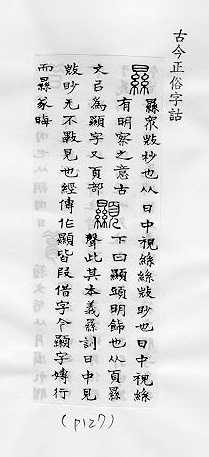 古今正俗字詁
㬎
㬎眾𢼸杪也从日中視絲絲𢼸杪也日中視絲
有明察之意古
文㠯為顯字又頁部
顯
下曰顯頭明飾也从頁㬎
聲此其本義㬎訓日中見
𢼸眇无不㬎見也經傳作顯皆叚借字今顯字專行
而㬎㒸晦
(P127)